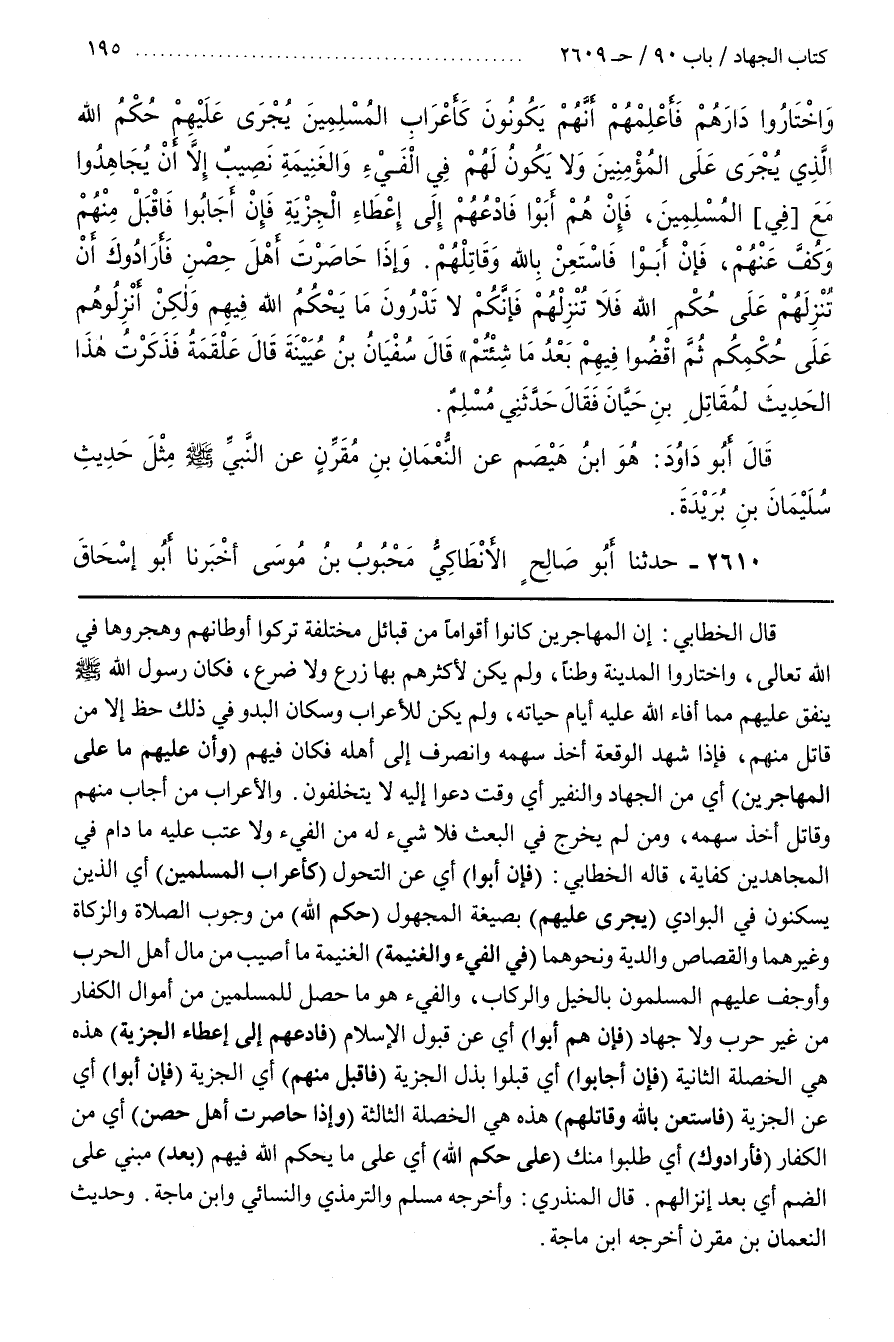 كتاب الجهاد / باب ٩٠ / حـ ٢٦٠٩ ........................................ ١٩٥
وَاخْتَارُوا دَارَهُمْ فَأَعْلِمْهُمْ أَنَّهُمْ يَكُونُونَ كَأَعْرَابِ المُسْلِمِينَ يُجْرَى عَلَيْهِمْ حُكْمُ الله
الَّذِي يُجْرَى عَلَى المُؤْمِنِينَ وَلا يَكُونُ لَهُمْ فِي الْفَيْءِ وَالغَنِيمَةِ نَصِيبٌ إِلَّا أَنْ يُجَاهِدُوا
مَعَ [فِي] المُسْلِمِينَ، فَإِنْ هُمْ أَبَوْا فَادْعُهُمْ إِلَى إِعْطَاءِ الْجِزْيَةِ فَإِنْ أَجَابُوا فَاقْبَلْ مِنْهُمْ
وَكُفَّ عَنْهُمْ، فَإِنْ أَبَوْا فَاسْتَعِنْ بِالله وَقَاتِلْهُمْ. وَإِذَا حَاصَرْتَ أَهْلَ حِصْنٍ فَأَرَادُوكَ أَنْ
تُنْزِلَهُمْ عَلَى حُكْمِ الله فَلَا تُنْزِلْهُمْ فَإِنَّكُمْ لا تَدْرُونَ مَا يَحْكُمُ الله فِيهِم وَلٰكِنْ أَنْزِلُوهُم
عَلَى حُكْمِكُم ثُمَّ اقْضُوا فِيهِمْ بَعْدُ مَا شِئْتُمْ» قَالَ سُفْيَانُ بنُ عُيَيْنَةَ قَالَ عَلْقَمَةُ فَذَكَرْتُ هٰذَا
الحَدِيثَ لمُقَاتِلِ بنِ حَيَّانَ فَقَالَ حَدَّثَنِي مُسْلِمٌ.
قَالَ أَبُو دَاوُدَ: هُوَ ابنُ هَيْصَم عن النُّعْمَانِ بنِ مُقَرِّنٍ عن النَّبيِّ ﷺ مِثْلَ حَدِيثِ
سُلَيْمَانَ بنِ بُرَيْدَةَ.
٢٦١٠ - حدثنا أَبُو صَالِحٍ الأَنْطَاكِيُّ مَحْبُوبُ بنُ مُوسَى أخْبَرنا أَبُو إسْحَاقَ
قال الخطابي: إن المهاجرين كانوا أقواماً من قبائل مختلفة تركوا أوطانهم وهجروها في
الله تعالى، واختاروا المدينة وطناً، ولم يكن لأكثرهم بها زرع ولا ضرع، فكان رسول الله ﷺ
ينفق عليهم مما أفاء الله عليه أيام حياته، ولم يكن للأعراب وسكان البدو في ذلك حظ إلا من
قاتل منهم، فإذا شهد الوقعة أخذ سهمه وانصرف إلى أهله فكان فيهم (وأن عليهم ما على
المهاجرين) أي من الجهاد والنفير أي وقت دعوا إليه لا يتخلفون. والأعراب من أجاب منهم
وقاتل أخذ سهمه، ومن لم يخرج في البعث فلا شيء له من الفيء ولا عتب عليه ما دام في
المجاهدين كفاية، قاله الخطابي: (فإن أبوا) أي عن التحول (كأعراب المسلمين) أي الذين
يسكنون في البوادي (يجرى عليهم) بصيغة المجهول (حكم الله) من وجوب الصلاة والزكاة
وغيرهما والقصاص والدية ونحوهما (في الفيء والغنيمة) الغنيمة ما أصيب من مال أهل الحرب
وأوجف عليهم المسلمون بالخيل والركاب، والفيء هو ما حصل للمسلمين من أموال الكفار
من غير حرب ولا جهاد (فإن هم أبوا) أي عن قبول الإسلام (فادعهم إلى إعطاء الجزية) هذه
هي الخصلة الثانية (فإن أجابوا) أي قبلوا بذل الجزية (فاقبل منهم) أي الجزية (فإن أبوا) أي
عن الجزية (فاستعن بالله وقاتلهم) هذه هي الخصلة الثالثة (وإذا حاصرت أهل حصن) أي من
الكفار (فأرادوك) أي طلبوا منك (على حكم الله) أي على ما يحكم الله فيهم (بعد) مبني على
الضم أي بعد إنزالهم. قال المنذري: وأخرجه مسلم والترمذي والنسائي وابن ماجة. وحديث
النعمان بن مقرن أخرجه ابن ماجة.